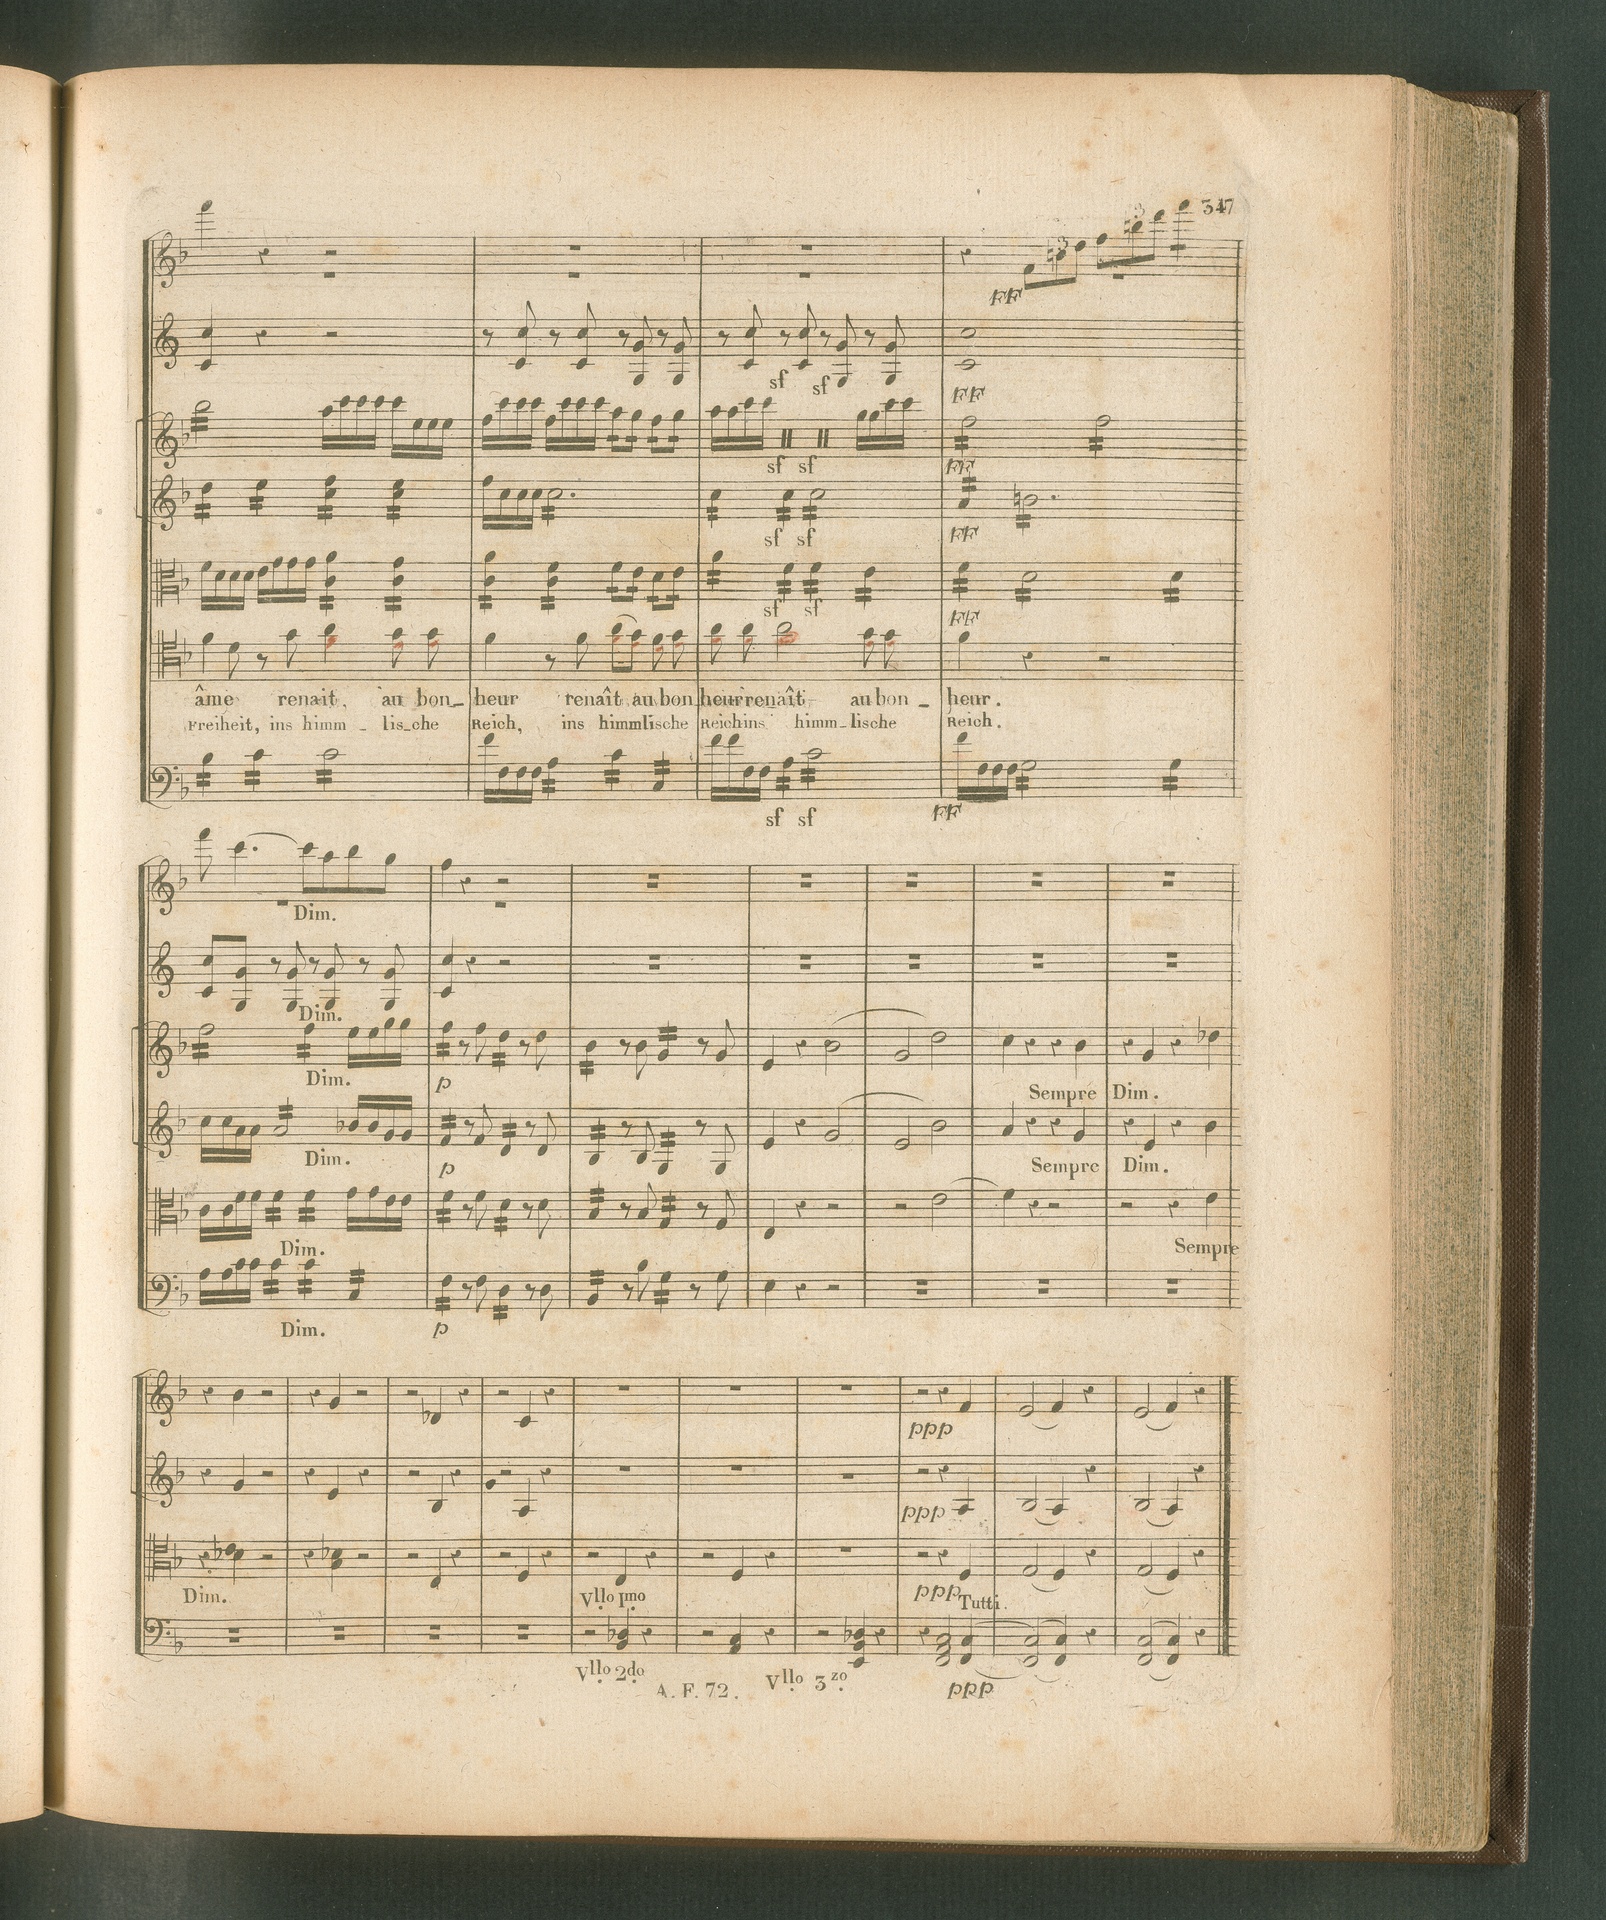 347
3 3
FF
sf sf
FF
sf sf
FF
sf sf
FF
sf sf
FF
âme renait, au bon_ heur renaît au bon heur renaît au bon_ heur.
Freiheit, ins himm_ lis_che Reich, ins himmlische Reich ins himm_lische Reich.
sf sf
FF
Dim.
Dim.
Dim.
p
Sempre Dim.
Dim.
p
Sempre Dim.
Dim.
Sempre
Dim.
p
ppp
ppp
ppp
Dim.
Vllo Imo
Tutti.
Vllo 2do
Vllo 3zo
ppp
A. F. 72.